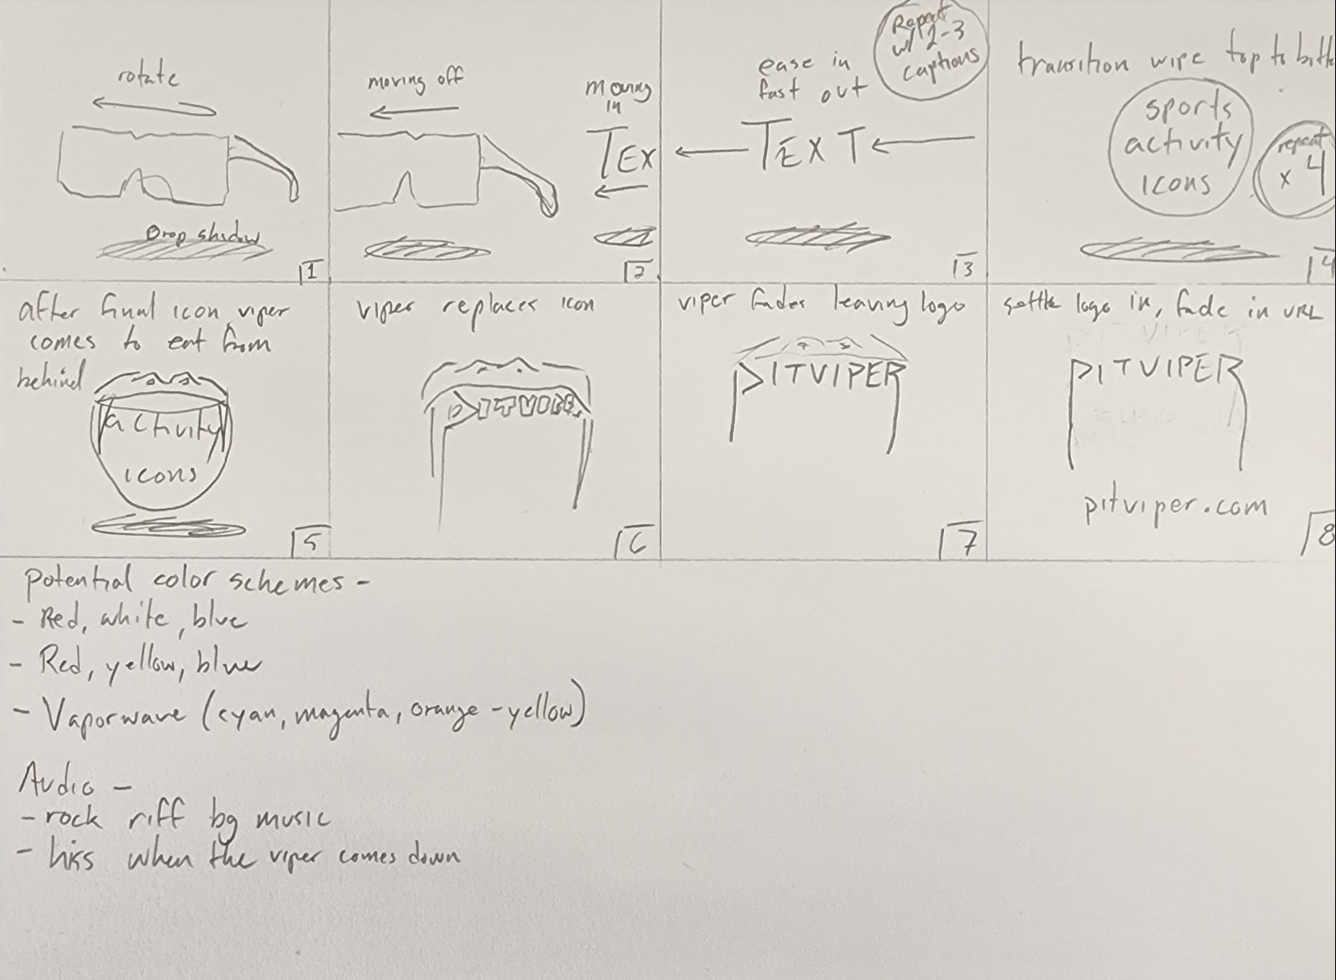 rotate
Drop shadow
1
moving off
moving
in
TEX
2
Repeat
w/ 2-3
captions
ease in
fast out
TEXT
3
transition wipe top to bott
sports
activity
icons
repeat
x 4
4
after final icon viper
comes to eat from
behind
activity
icons
5
viper replaces icon
PITVIPER
6
viper fades leaving logo
PITVIPER
7
settle logo in, fade in URL
PITVIPER
pitviper.com
8
potential color schemes -
- Red, white, blue
- Red, yellow, blue
- Vaporwave (cyan, magenta, orange-yellow)
Audio -
- rock riff bg music
- hiss when the viper comes down